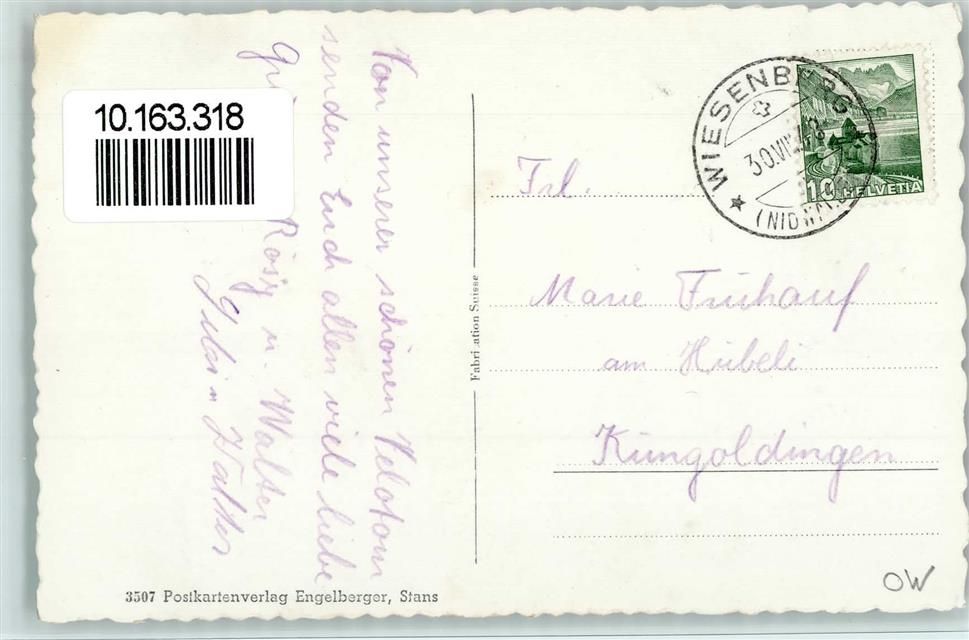 10.163.318
Von unserer schönen Velotour
senden Euch allen viele liebe
Rösy u. Walter
Walter
3507 Postkartenverlag Engelberger, Stans
Fabrication Suisse
WIESENBERG
30.VII
(NIDW
10 HELVETIA
Frl.
Marie Frühauf
am Hübeli
Küngoldingen
OW